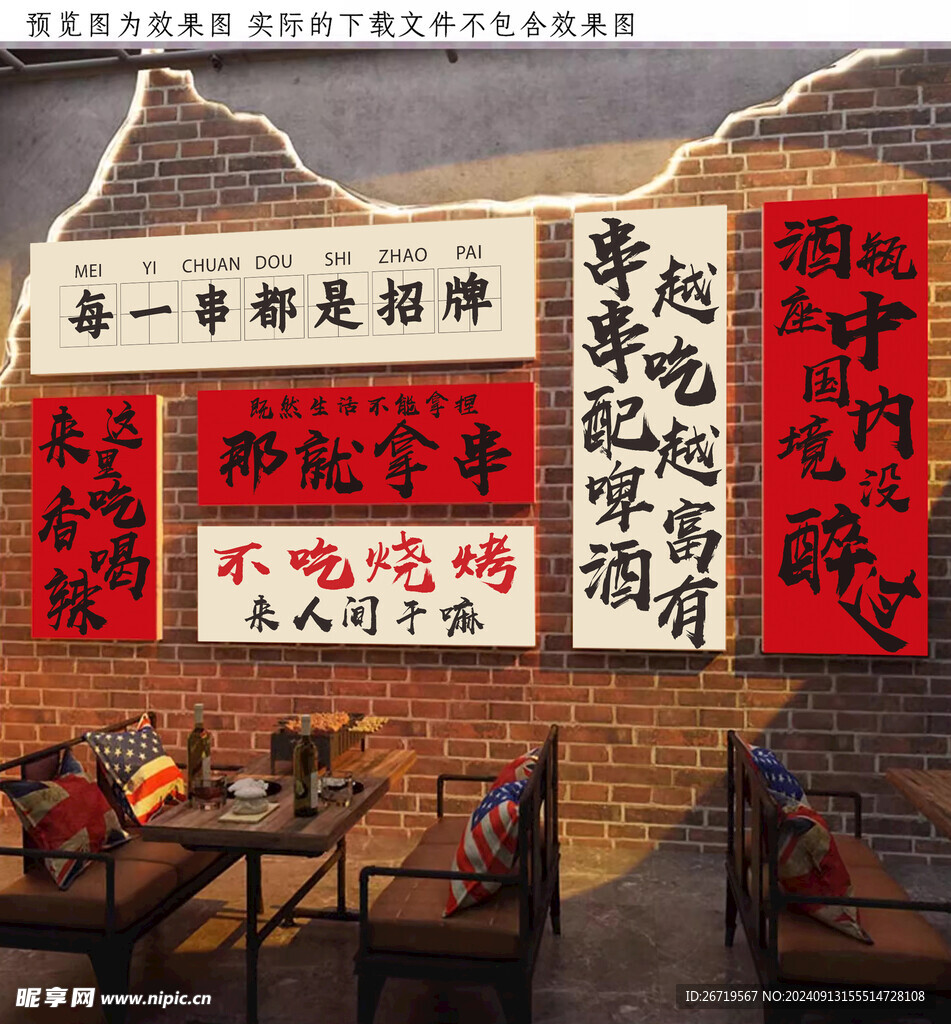 预览图为效果图 实际的下载文件不包含效果图
MEI YI CHUAN DOU SHI ZHAO PAI
每一串都是招牌
来这里吃香喝辣
既然生活不能拿捏
那就拿串
不吃烧烤
来人间干嘛
串串配啤酒
越吃越富有
酒瓶座中国境内没醉过
昵享网 www.nipic.cn
ID:26719567 NO:20240913155514728108